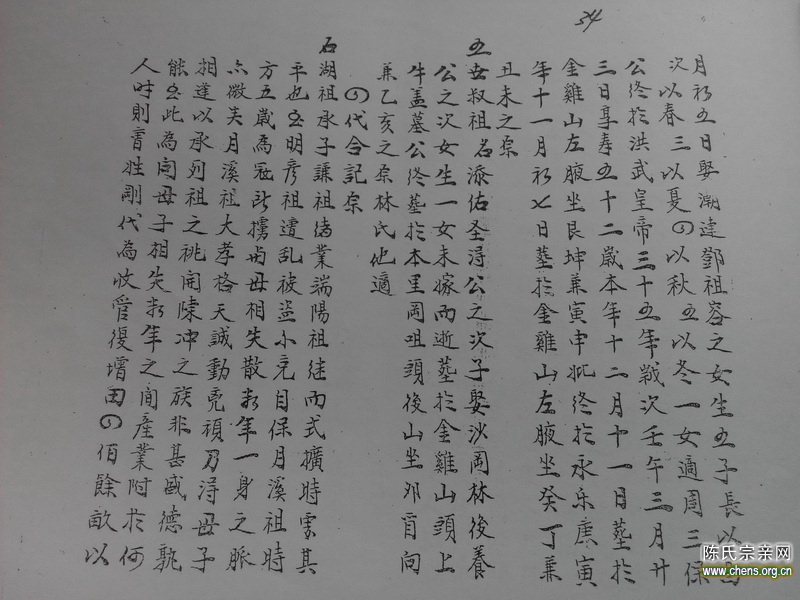 54
月初五日娶潮連鄧祖容之女生五子長以
次以春三以夏四以秋五以冬一女適周三保
公終於洪武皇帝三十五年戰次壬午三月廿
三日享壽五十二歲本年十二月十一日塟於
金雞山左腋坐艮坤兼寅申妣終於永乐庚寅
年十一月初七日塟於金雞山左腋坐癸丁兼
丑未之原
五世叔祖名添佑圣淂公之次子娶沙岡林後養
公之次女生一女未嫁而逝塟於金雞山頭上
牛盖墓公終塟於本里岡咀頭後山坐 向
兼乙亥之原林氏他適
四代合記宗
石湖祖承子謙祖 業端陽祖継而式擴時家其
平也至明彦祖遭乱被盜小児自保月溪祖時
方五歲為冦所擄与母相失散数年一身之脈
亦微矣月溪祖大孝格天誠動 頑乃淂母子
相逢以承列祖之祧開陳冲之族非甚盛德孰
能至此為 母子相失数年之間産業附於何
人时則 姓剛代為收管復增田四佰餘畝以
陈氏宗亲网
www.chens.org.cn